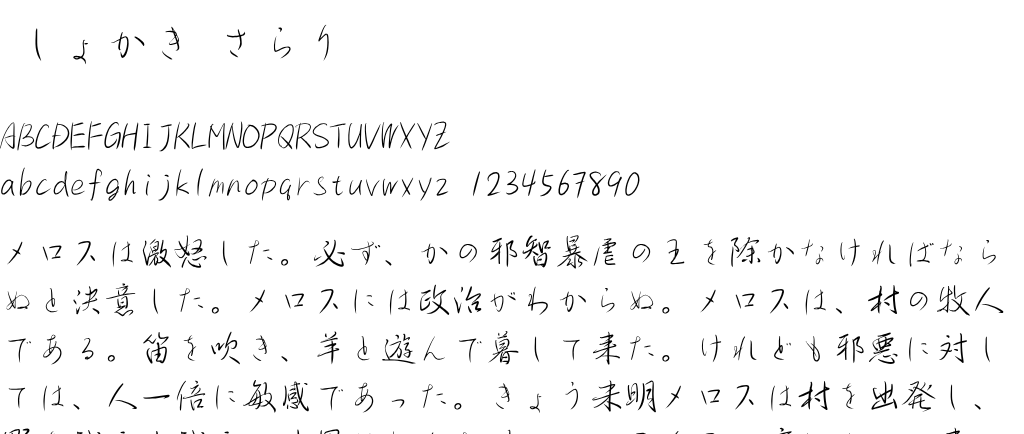 しょかき さらり
ABCDEFGHIJKLMNOPQRSTUVWXYZ
abcdefghijklmnopqrstuvwxyz 1234567890
メロスは激怒した。必ず、かの邪智暴虐の王を除かなければなら
ぬと決意した。メロスには政治がわからぬ。メロスは、村の牧人
である。笛を吹き、羊と遊んで暮して来た。けれども邪悪に対し
ては、人一倍に敏感であった。きょう未明メロスは村を出発し、